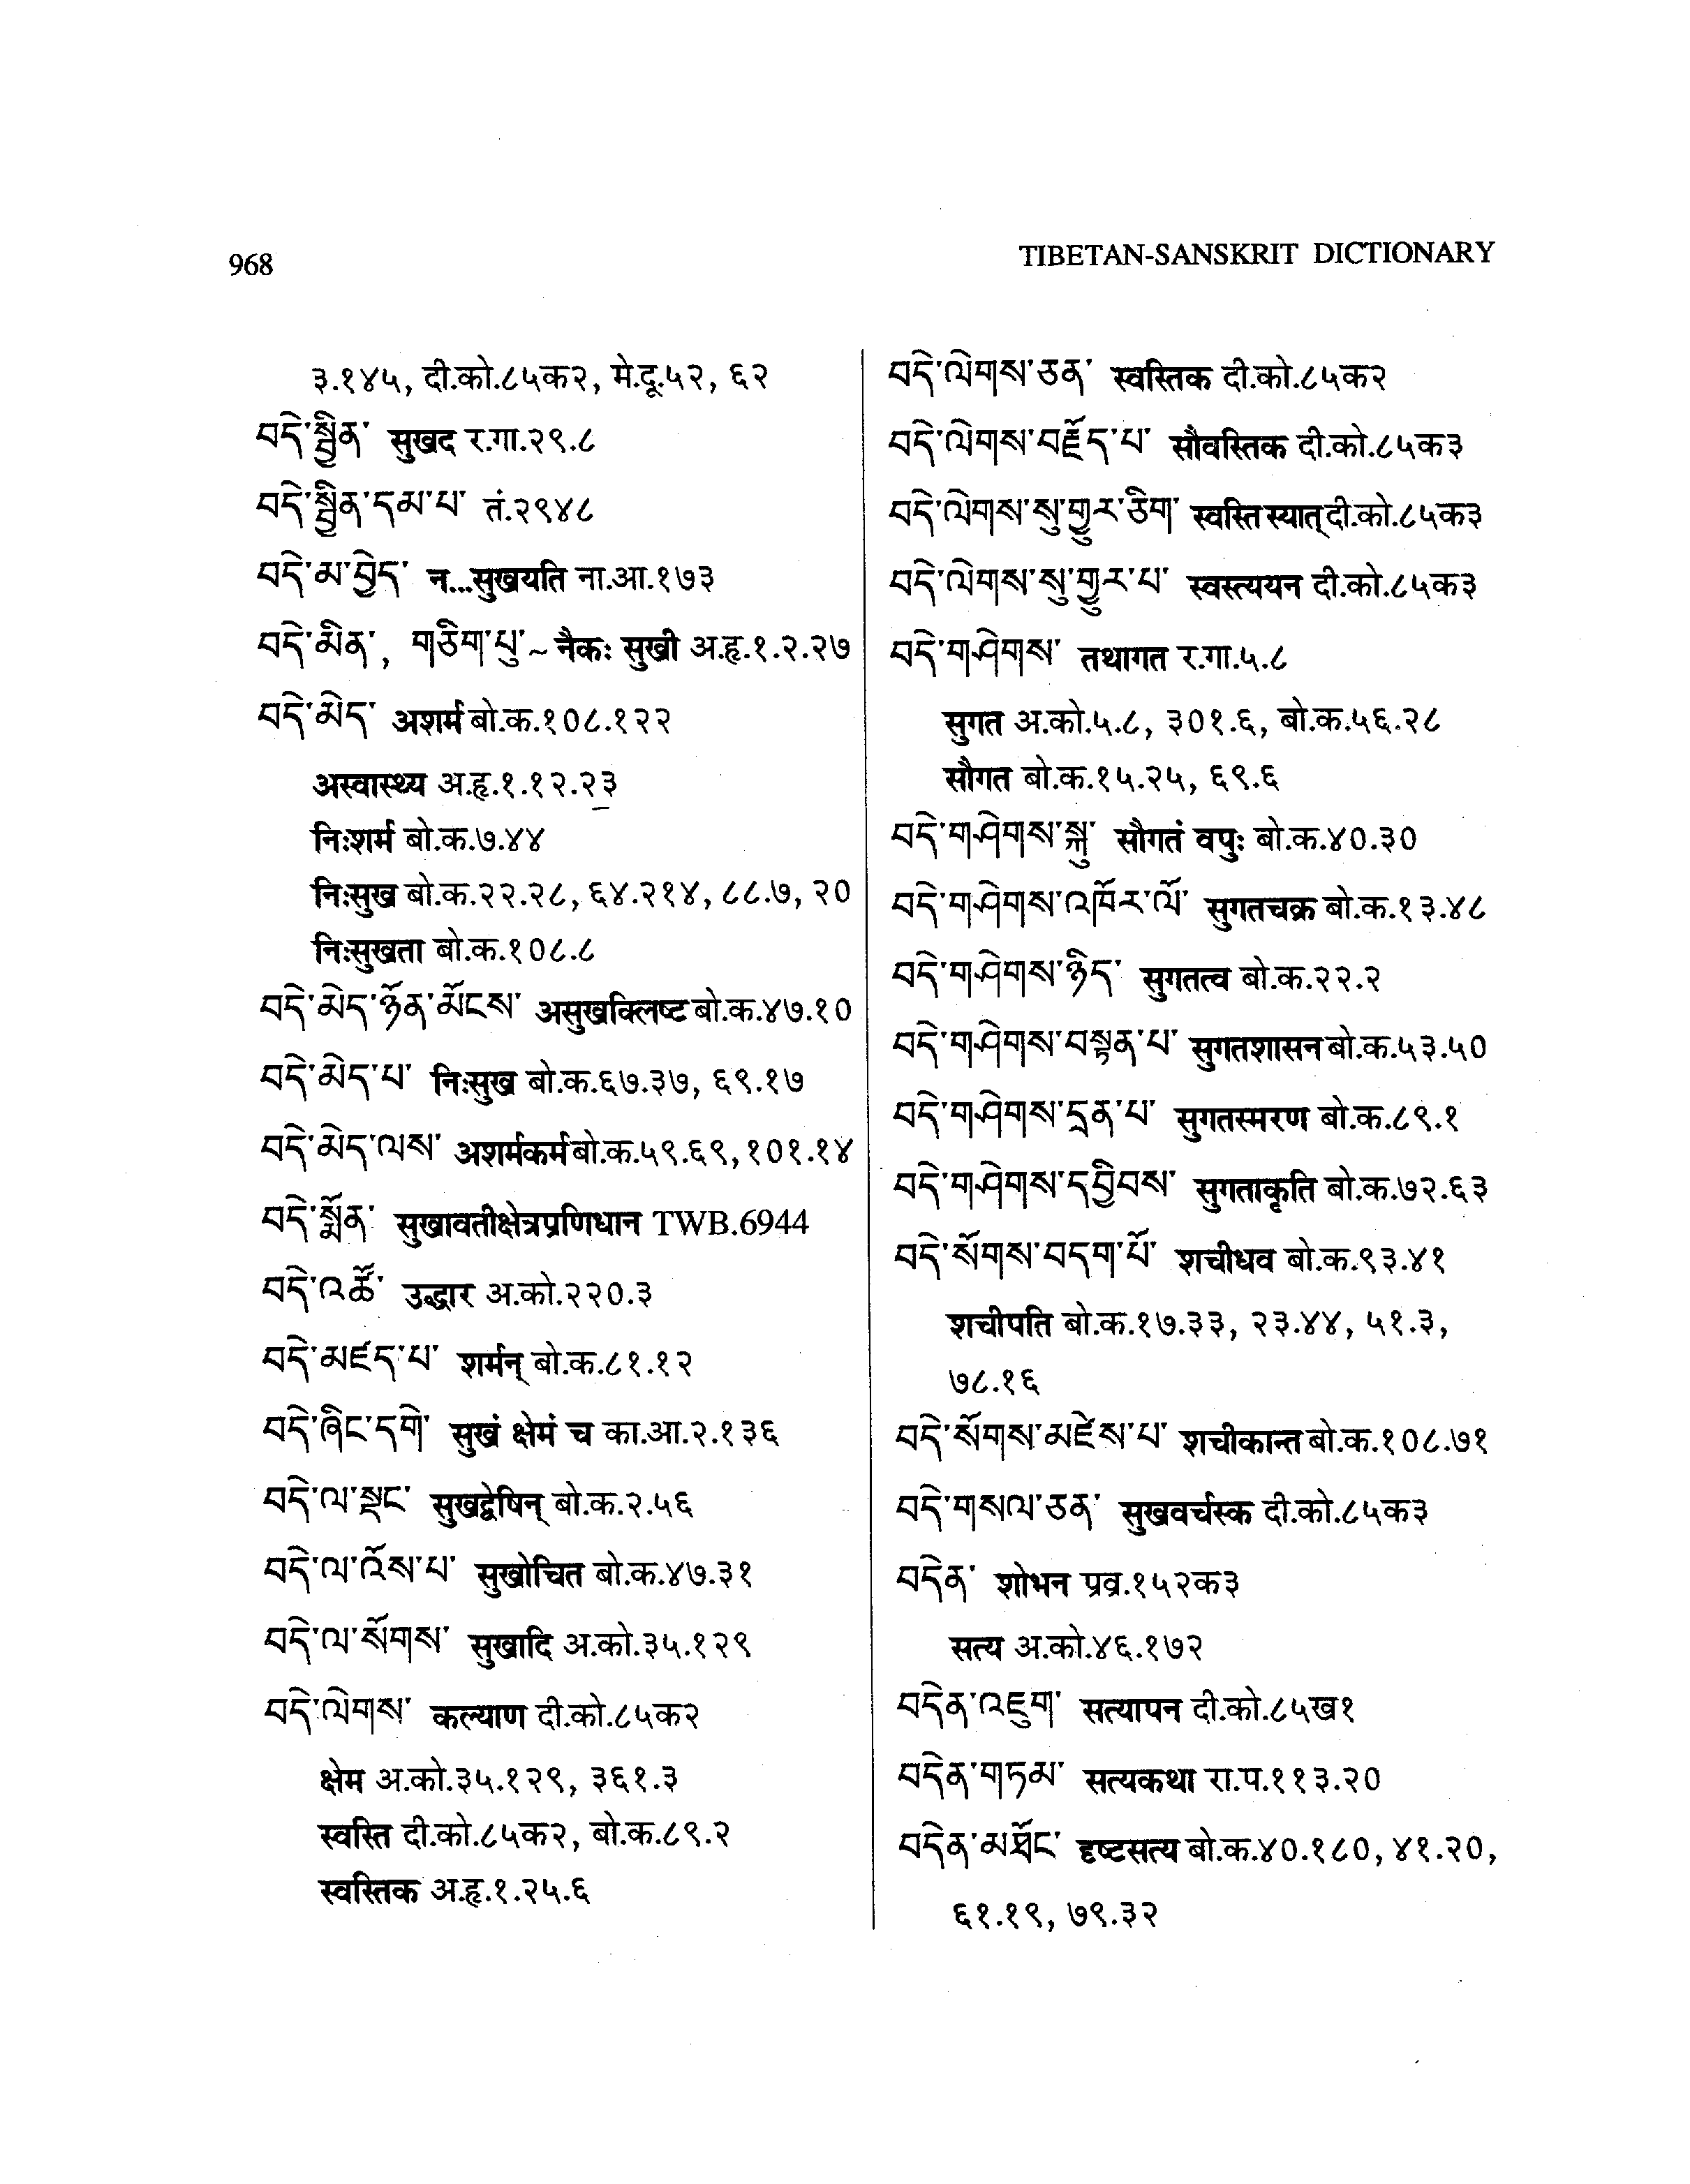 968
TIBETAN-SANSKRIT DICTIONARY
३.१४५, दी.को.८५क२, मे.दू.५२, ६२
བདེ་སྦྱིན་ सुखद र.गा.२९.८
བདེ་སྦྱིན་དམ་པ་ तं.२९४८
བདེ་མ་བྱེད་ न...सुखयति ना.आ.१७३
བདེ་མིན་, གཅིག་པུ་~ नैकः सुखी अ.हृ.१.२.२७
བདེ་མེད་ अशर्म बो.क.१०८.१२२
अस्वास्थ्य अ.हृ.१.१२.२३
निःशर्म बो.क.७.४४
निःसुख बो.क.२२.२८, ६४.२१४, ८८.७, २०
निःसुखता बो.क.१०८.८
བདེ་མེད་ཉོན་མོངས་ असुखक्लिष्ट बो.क.४७.१०
བདེ་མེད་པ་ निःसुख बो.क.६७.३७, ६९.१७
བདེ་མེད་ལས་ अशर्मकर्म बो.क.५९.६९, १०१.१४
བདེ་སྨོན་ सुखावतीक्षेत्रप्रणिधान TWB.6944
བདེ་འཚོ་ उद्धार अ.को.२२०.३
བདེ་མཛད་པ་ शर्मन् बो.क.८१.१२
བདེ་ཞིང་དགེ་ सुखं क्षेमं च का.आ.२.१३६
བདེ་ལ་སྡང་ सुखद्वेषिन् बो.क.२.५६
བདེ་ལ་འོས་པ་ सुखोचित बो.क.४७.३१
བདེ་ལ་སོགས་ सुखादि अ.को.३५.१२९
བདེ་ལེགས་ कल्याण दी.को.८५क२
क्षेम अ.को.३५.१२९, ३६१.३
स्वस्ति दी.को.८५क२, बो.क.८९.२
स्वस्तिक अ.हृ.१.२५.६
བདེ་ལེགས་ཅན་ स्वस्तिक दी.को.८५क२
བདེ་ལེགས་བརྗོད་པ་ सौवस्तिक दी.को.८५क३
བདེ་ལེགས་སུ་གྱུར་ཅིག་ स्वस्ति स्यात् दी.को.८५क३
བདེ་ལེགས་སུ་གྱུར་པ་ स्वस्त्ययन दी.को.८५क३
བདེ་གཤེགས་ तथागत र.गा.५.८
सुगत अ.को.५.८, ३०१.६, बो.क.५६.२८
सौगत बो.क.१५.२५, ६९.६
བདེ་གཤེགས་སྐུ་ सौगतं वपुः बो.क.४०.३०
བདེ་གཤེགས་འཁོར་ལོ་ सुगतचक्र बो.क.१३.४८
བདེ་གཤེགས་ཉིད་ सुगतत्व बो.क.२२.२
བདེ་གཤེགས་བསྟན་པ་ सुगतशासन बो.क.५३.५०
བདེ་གཤེགས་དྲན་པ་ सुगतस्मरण बो.क.८९.१
བདེ་གཤེགས་དབྱིབས་ सुगताकृति बो.क.७२.६३
བདེ་སོགས་བདག་པོ་ शचीधव बो.क.९३.४१
शचीपति बो.क.१७.३३, २३.४४, ५१.३,
७८.१६
བདེ་སོགས་མཛེས་པ་ शचीकान्त बो.क.१०८.७१
བདེ་གསལ་ཅན་ सुखवर्चस्क दी.को.८५क३
བདེན་ शोभन प्रव्र.१५२क३
सत्य अ.को.४६.१७२
བདེན་འཇུག་ सत्यापन दी.को.८५ख१
བདེན་གཏམ་ सत्यकथा रा.प.११३.२०
བདེན་མཐོང་ दृष्टसत्य बो.क.४०.१८०, ४१.२०,
६१.१९, ७९.३२